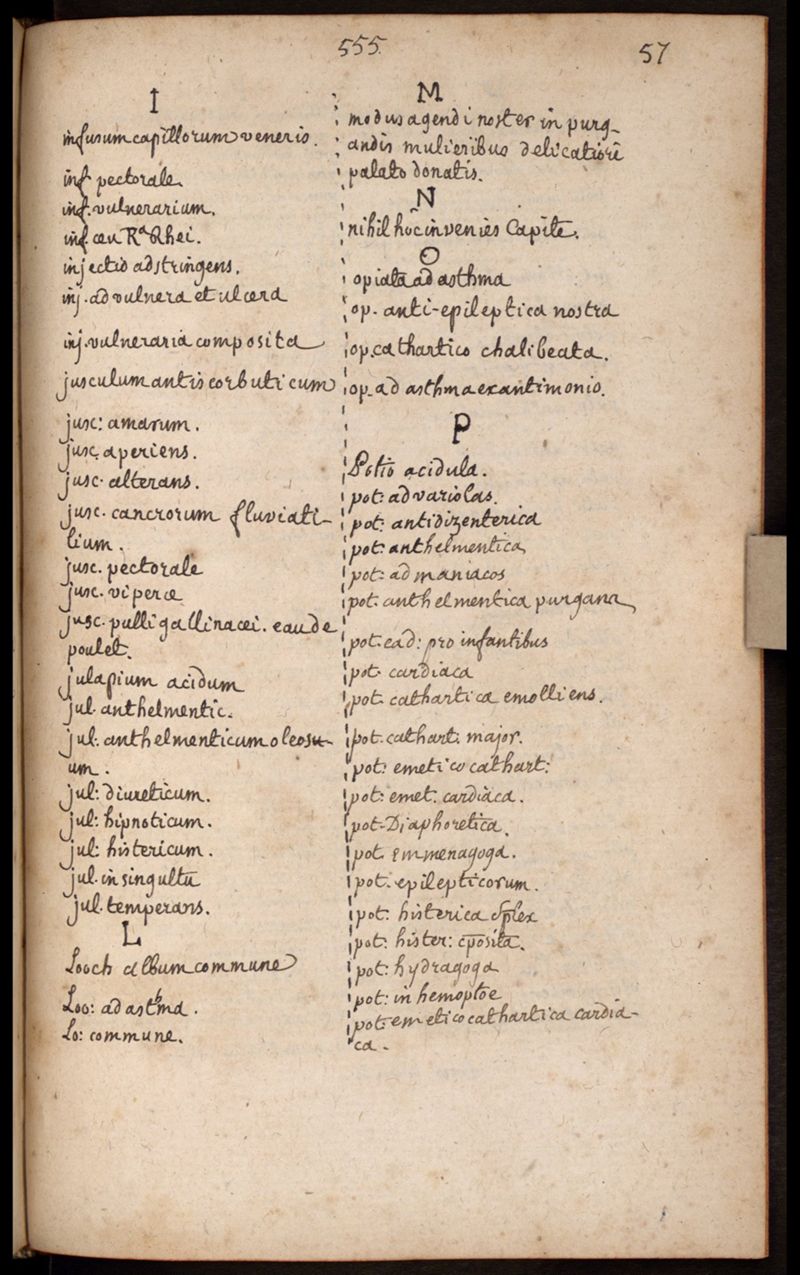 555.
57
I
infusum capillorum veneris.
inf. pectorale
inf. vulnerarium.
inf. ceu Ra Rhei.
injectio adstringens.
inj. ad vulnera et ulcera
inj. vulneraria composita
jusculum antiscorbuticum
jusc: amarum.
jusc. aperiens.
jusc. alterans.
jusc. cancrorum fluviati-
lium.
jusc. pectorale
jusc. viperæ
jusc. pulli gallinacei. eau de
poulet.
julapium acidum
jul. anthelmentic.
jul. anthelmenticum oleosu-
um.
jul: diureticum.
jul: hipnoticum.
jul: histericum.
jul. in singultū
jul. temperans.
L
Looch album commune
Loo: ad astma.
Lo: commune.
M
modus agendi noster in purg-
andis mulieribus delicatiori
palato donatis.
N
nihil hoc invenies Capite.
O
opiata ad asthma
op. anti-epileptica nostra
op. cathartico chalibeata.
op. ad asthma ex antimonio.
P
Potio acidula.
pot: ad variolas.
pot: antidizenterica
pot: anthelmentica
pot: ad maniacos
pot. anthelmentica purgans
pot. ead: pro infantibus
pot. cardiaca
pot. cathartica emolliens.
pot. cathart. major.
pot: emetico cathart:
pot: emet. cardiaca.
pot. Diaphoretica.
pot. emmenagoga.
pot. epilepticorum.
pot: histerica splex
pot: hister: cpōsita.
pot: hydragoga
pot: in hemoptoe
pot: emetico cathartica cardia-
ca.